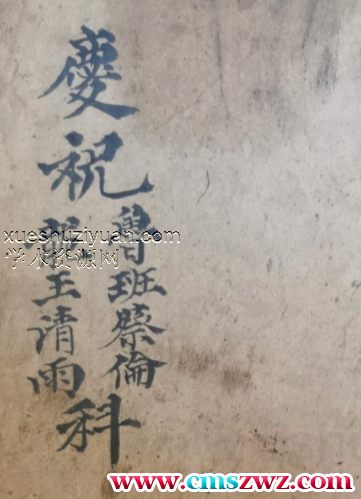 慶祝
魯班蔡倫
王清雨
科
xueshuziyuan.com
学术资源网
www.cmszwz.com